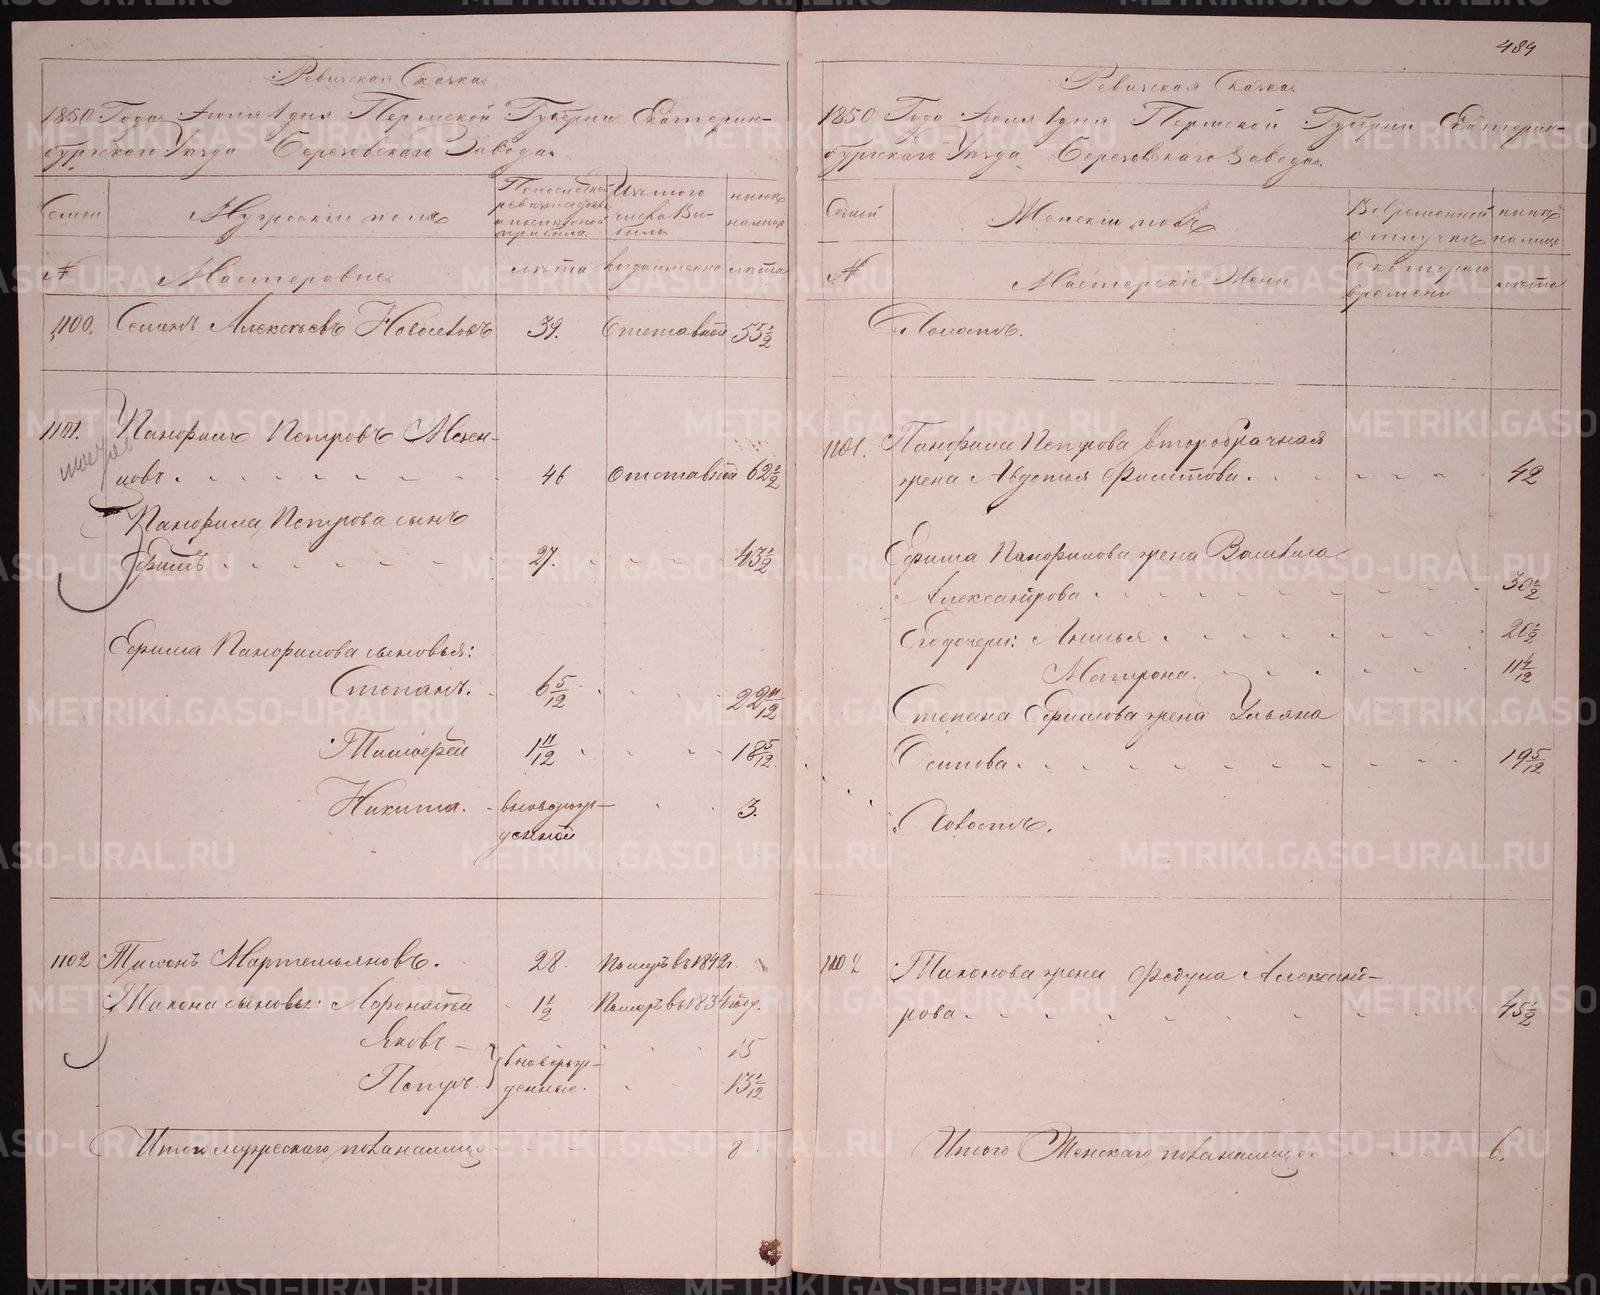 Ревизская Сказка
1850 Года Июля 1 дня Пермской Губернии Екатерин-
бургскаго Уезда Березовскаго Завода.
Семьи
Мужескій полъ
По последней ревизіи
Изъ того числа вы-
было
ныне
на лицо
№
Мастеровые
лѣта
когда именно
лѣта
1100.
39.
Отставной
55 1/2
1101.
Панфилъ Петровъ
новъ
46
Отставной
62 1/2
Панфила Петрова сынъ
Ефимъ
27.
43 1/2
Ефима Панфилова сыновья:
Степанъ.
6 5/12
22 11/12
Тимофей
1 11/12
18 5/12
Никита.
вноворож-
денной
3.
1102
Тихонъ Мартемьяновъ.
28.
Померъ въ 1842 г.
Тихона сыновья:
1 1/2
Померъ въ 1834 году.
Яковъ
вноворож-
15
Петръ.
денные.
13 1/12
Итого мужескаго пола на лицо
8.
484
Ревизская Сказка
1850 Года Июля 1 дня Пермской Губернии Екатерин-
бургскаго Уезда Березовскаго Завода.
Семьи
Женскій полъ
Во временной
отлучке
ныне
на лицо
№
Мастерскіе Жены
с котораго
времени
лѣта
Холостъ.
1101.
Панфила Петрова второбрачная
жена Авдотья
42
Ефима Панфилова жена
Александрова
30 1/2
Его дочери:
Матрона.
11 4/12
Степана Ефимова жена Ульяна
Осипова
19 5/12
Холостъ.
1102
Тихонова жена Федула Александ-
рова
45 1/2
Итого Женскаго пола на лицо
6.
METRIKI.GASO-URAL.RU